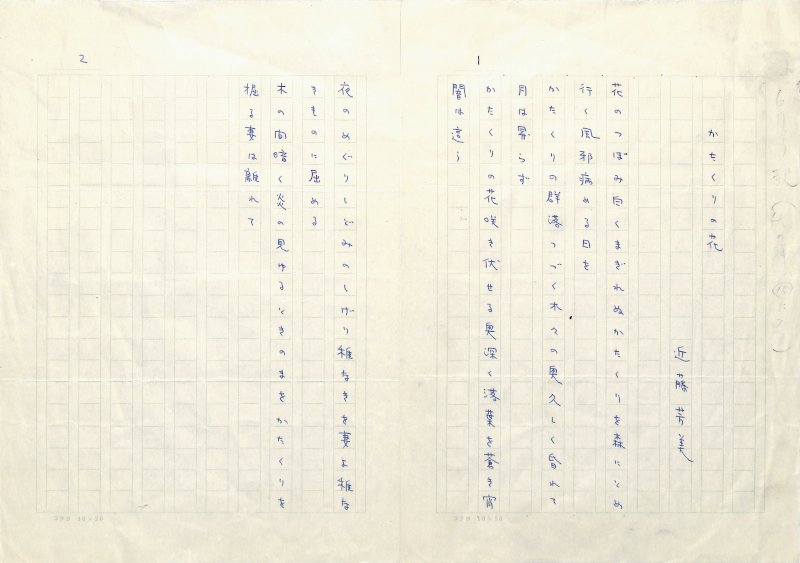 1
かたくりの花
近藤芳美
花のつぼみ白くまぎれぬかたくりを森にとめ
行く風邪病める日を
かたくりの群落つづく木々の奥久しく昏れて
月は昇らず
かたくりの花咲き伏せる奥深く落葉を蒼き宵
闇は這う
2
夜のめぐりしどみのしげり稚なきを妻よ稚な
きものに屈める
木の間暗く炎の見ゆるときのまをかたくりを
掘る妻は離れて
コクヨ
コクヨ